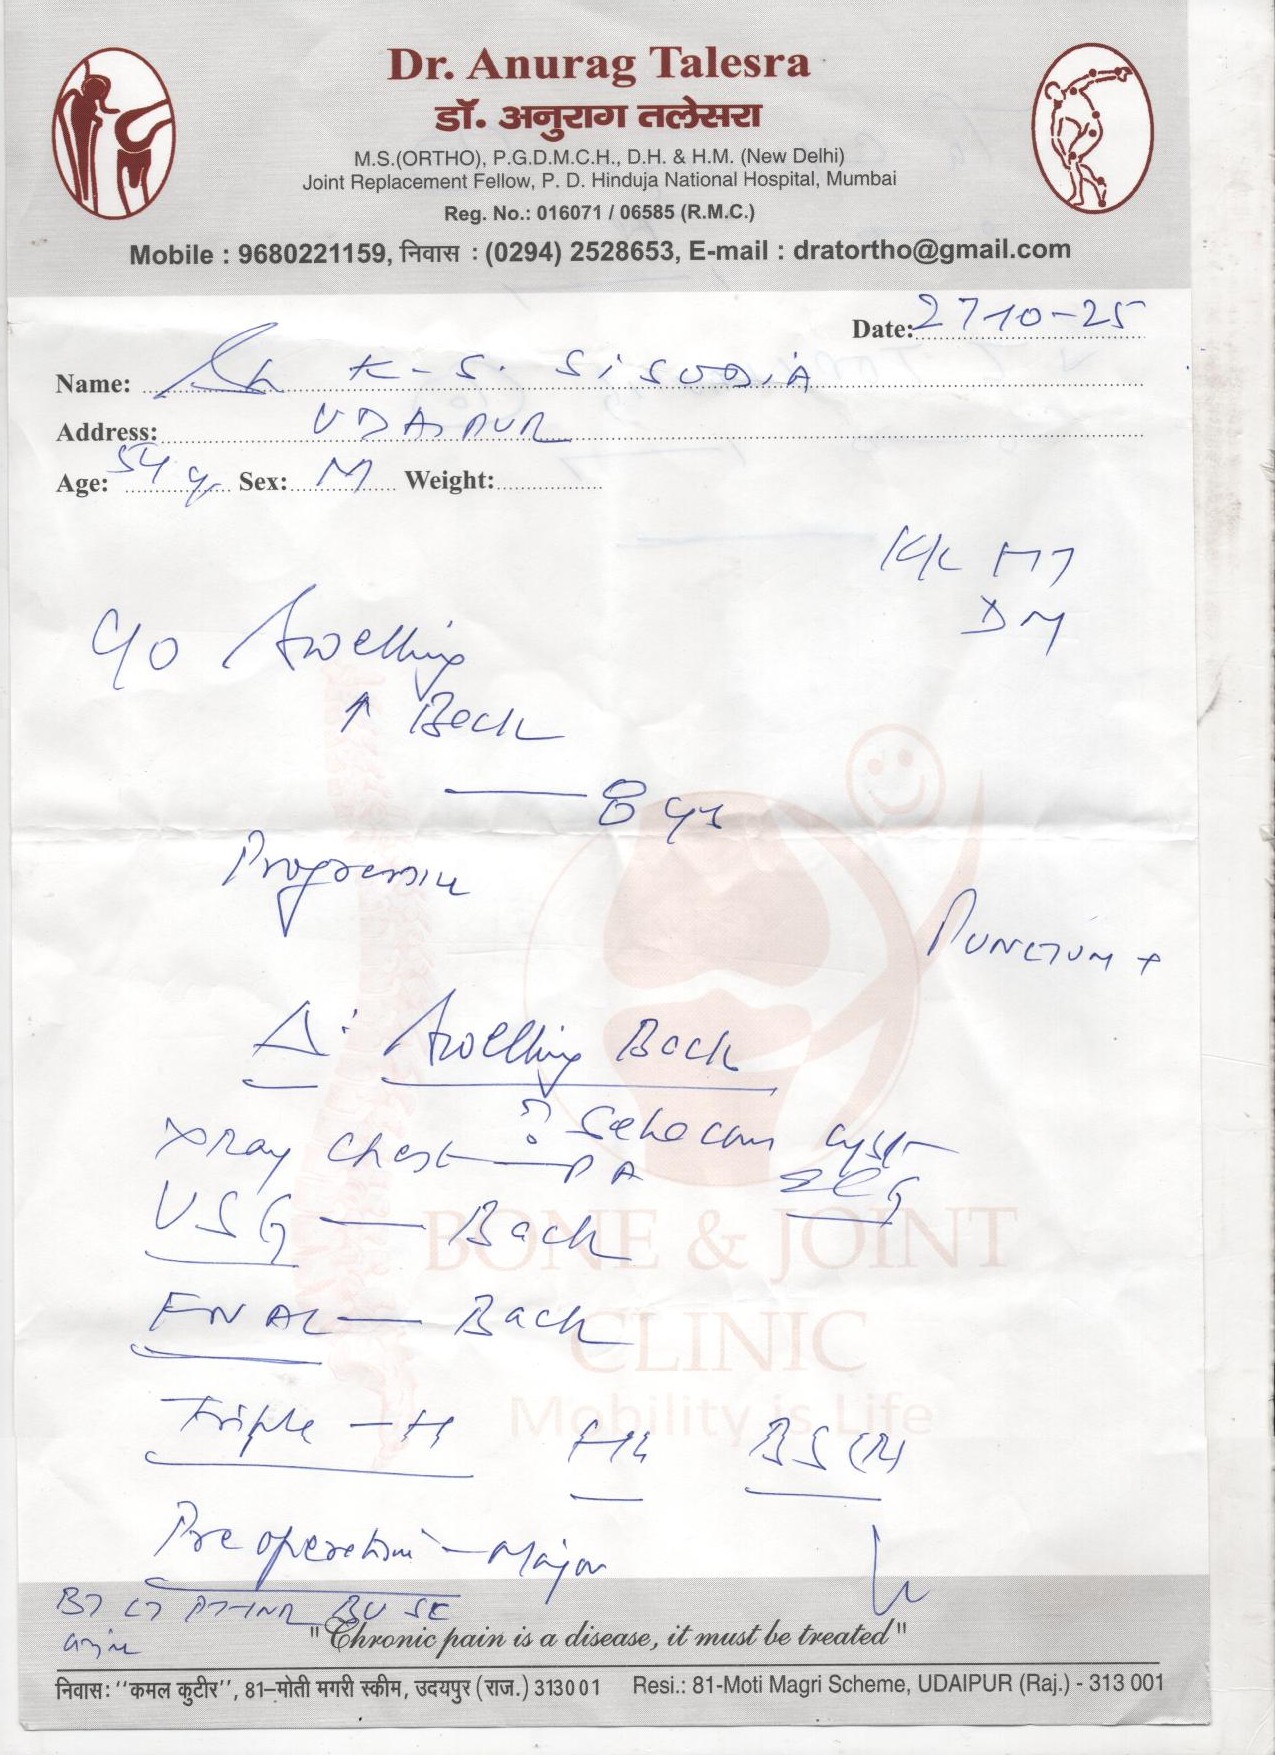 Dr. Anurag Talesra
डॉ. अनुराग तलेसरा
M.S.(ORTHO), P.G.D.M.C.H., D.H. & H.M. (New Delhi)
Joint Replacement Fellow, P. D. Hinduja National Hospital, Mumbai
Reg. No.: 016071 / 06585 (R.M.C.)
Mobile : 9680221159, निवास : (0294) 2528653, E-mail : dratortho@gmail.com
Date: 27-10-25
Name: Sh K-S. SISODIA
Address: UDAIPUR
Age: 54 yr Sex: M Weight:
K/c HT
DM
C/O Swelling
↑ Back
— 8 yrs
Progressive
PUNCTUM +
Δ: Swelling Back
? Sebaceous cyst
XRay Chest — PA ECG
USG — Back
FNAC — Back
Triple - H BS (R)
Pre operative - Major
BT CT PT-INR BU SE
BONE & JOINT
CLINIC
Mobility is Life
"Chronic pain is a disease, it must be treated"
निवास: "कमल कुटीर", 81–मोती मगरी स्कीम, उदयपुर (राज.) 313001 Resi.: 81-Moti Magri Scheme, UDAIPUR (Raj.) - 313 001